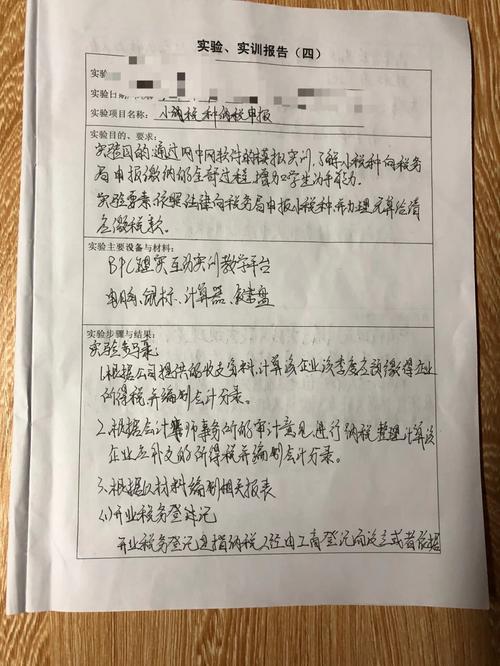 实验、实训报告（四）
实验
实验日期
实验项目名称： 小税种纳税申报
实验目的、要求：
实验目的：通过网中网软件的模拟实训，了解小税种向税务
局申报缴纳的全部过程，增加学生动手能力。
实验要素：依照法律向税务局申报小税种，并办理结算给清
应缴税款。
实验主要设备与材料：
教学平台
电脑、鼠标、计算器、键盘
实验步骤与结果：
实验步骤：
1.根据公司提供的收支资料，计算该企业该季度应预缴得企业
所得税并编制会计分录。
2.根据会计师事务所的审计意见，进行纳税整理计算该
企业应补交的所得税并编制会计分录。
3.根据以材料编制相关报表
(1)开业税务登记
开业税务登记是指纳税人经由工商登记而设立或者依据